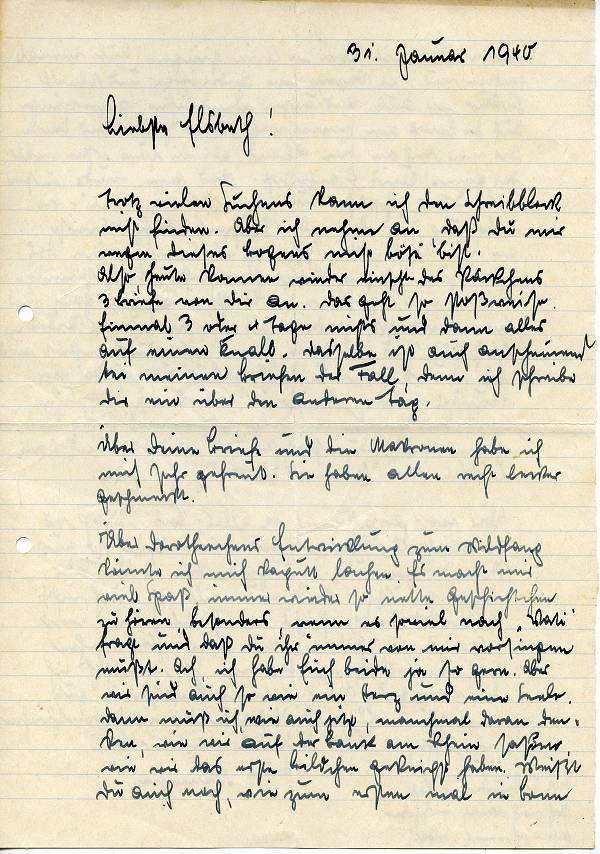 31. Januar 1940
Liebste Elsbeth!
trotz vielen Suchens kann ich den Schreibblock
nicht finden. Aber ich nehme an daß du mir
wegen dieses Bogens nicht böse bist.
Also heute kamen wieder einschl. des Päckchens
3 Briefe von dir an. Das geht so stoßweise.
Einmal 3 oder 4 Tage nichts und dann alles
auf einen Knall. Dasselbe ist auch anscheinend
bei meinen Briefen der Fall, denn ich schreibe
dir ein über den anderen Tag.
Über deine Briefe und die Makronen habe ich
mich sehr gefreut. Sie haben allen recht lecker
geschmeckt.
Über Dorotheechens Entwicklung zum Wildfang
könnte ich mich kaputt lachen. Es macht mir
viel Spaß immer wieder so nette Geschichtchen
zu hören, besonders wenn es soviel nach "Vati"
fragt und daß du ihr immer von mir vorsingen
mußt. Ach, ich habe Euch beide ja so gern. Aber
wir sind auch so wie ein Herz und eine Seele.
dann muß ich, wie auch jetzt, manchmal daran den-
ken, wie wir auf der Bank am Rhein saßen,
wie wir das erste Bildchen geknipst haben. Weißt
du auch noch, wie zum ersten mal in Bonn